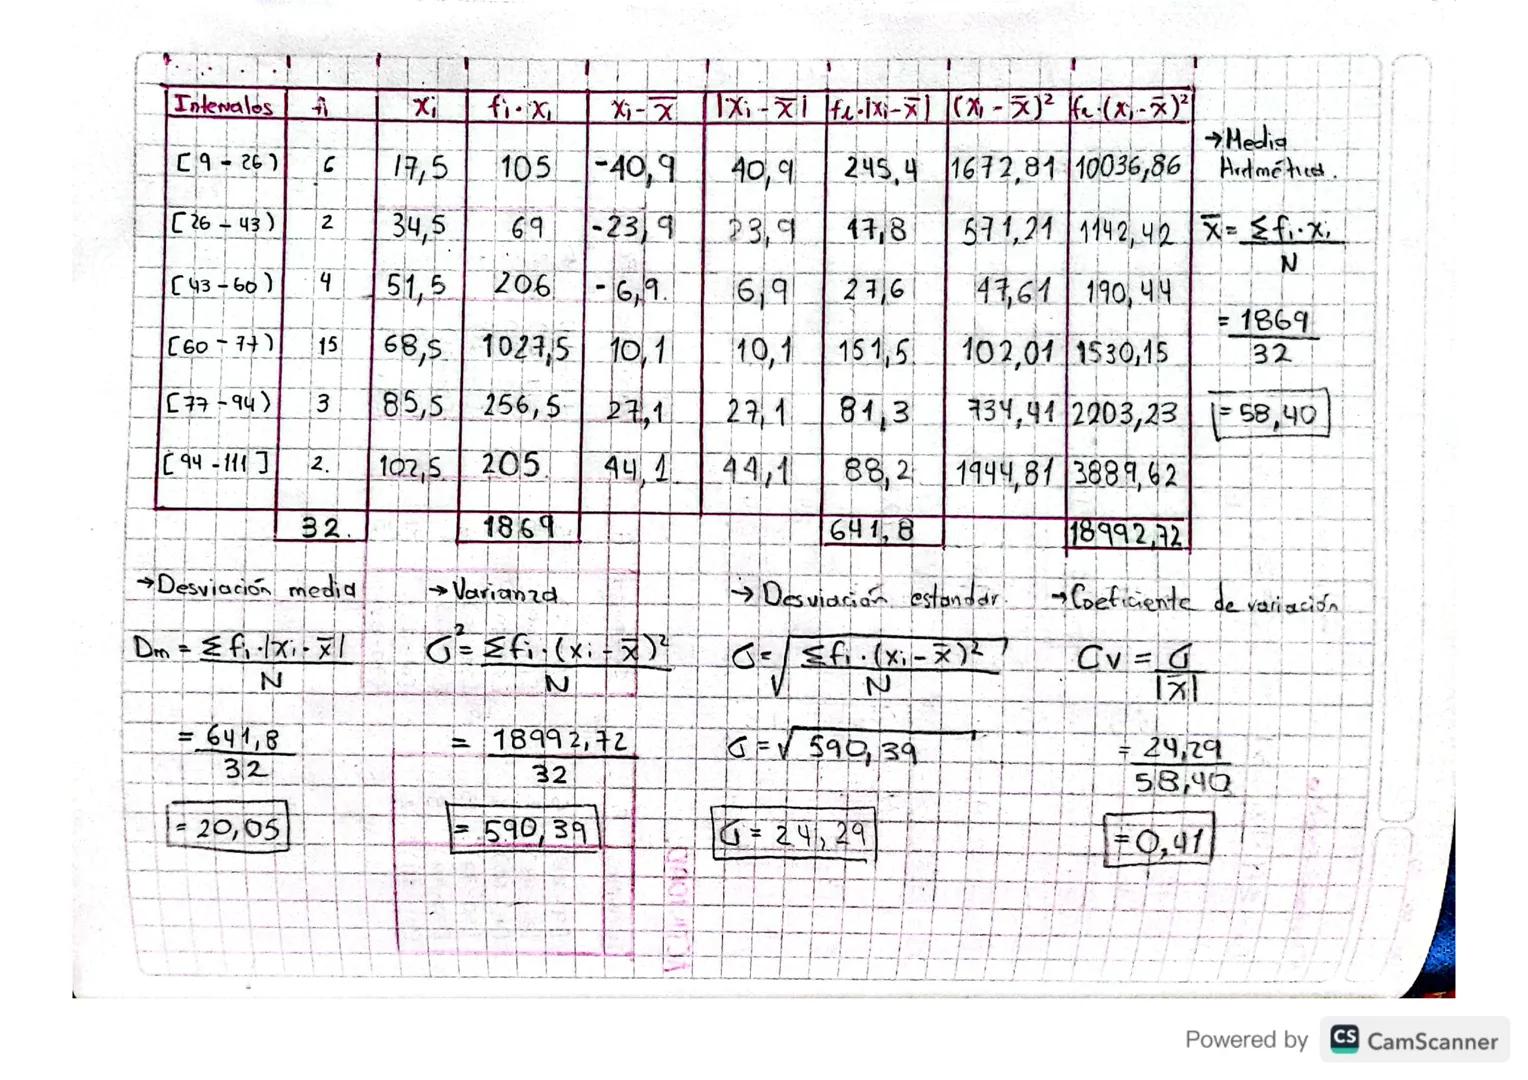 Intervalos fi xi fi·xi xi-x̅ |xi-x̅| fi·|xi-x̅| (xi-x̅)² fi·(xi-x̅)²
[9-26) 6 17,5 105 -40,9 40,9 245,4 1672,81 10036,86
[26-43) 2 34,5 69 -23,9 23,9 47,8 571,21 1142,42
[43-60) 4 51,5 206 -6,9. 6,9 27,6 47,61 190,44
[60-77) 15 68,5 1027,5 10,1 10,1 151,5 102,01 1530,15
[77-94) 3 85,5 256,5 27,1 27,1 81,3 734,41 2203,23
[94-111] 2. 102,5 205. 44,1 44,1 88,2 1944,81 3889,62
32. 1869 641,8 18992,72
→Media
Aritmética.
x̅ = Σfi·xi
N
= 1869
32
= 58,40
→Desviación media
Dm = Σfi·|xi-x̅|
N
= 641,8
32
= 20,05
→Varianza
σ² = Σfi·(xi-x̅)²
N
= 18992,72
32
= 590,39
→Desviación estandar.
σ = √Σfi·(xi-x̅)²
N
σ = √590,39
σ = 24,29
→Coeficiente de variación
Cv = σ
|x̅|
= 24,29
58,40
= 0,41
Powered by CS CamScanner